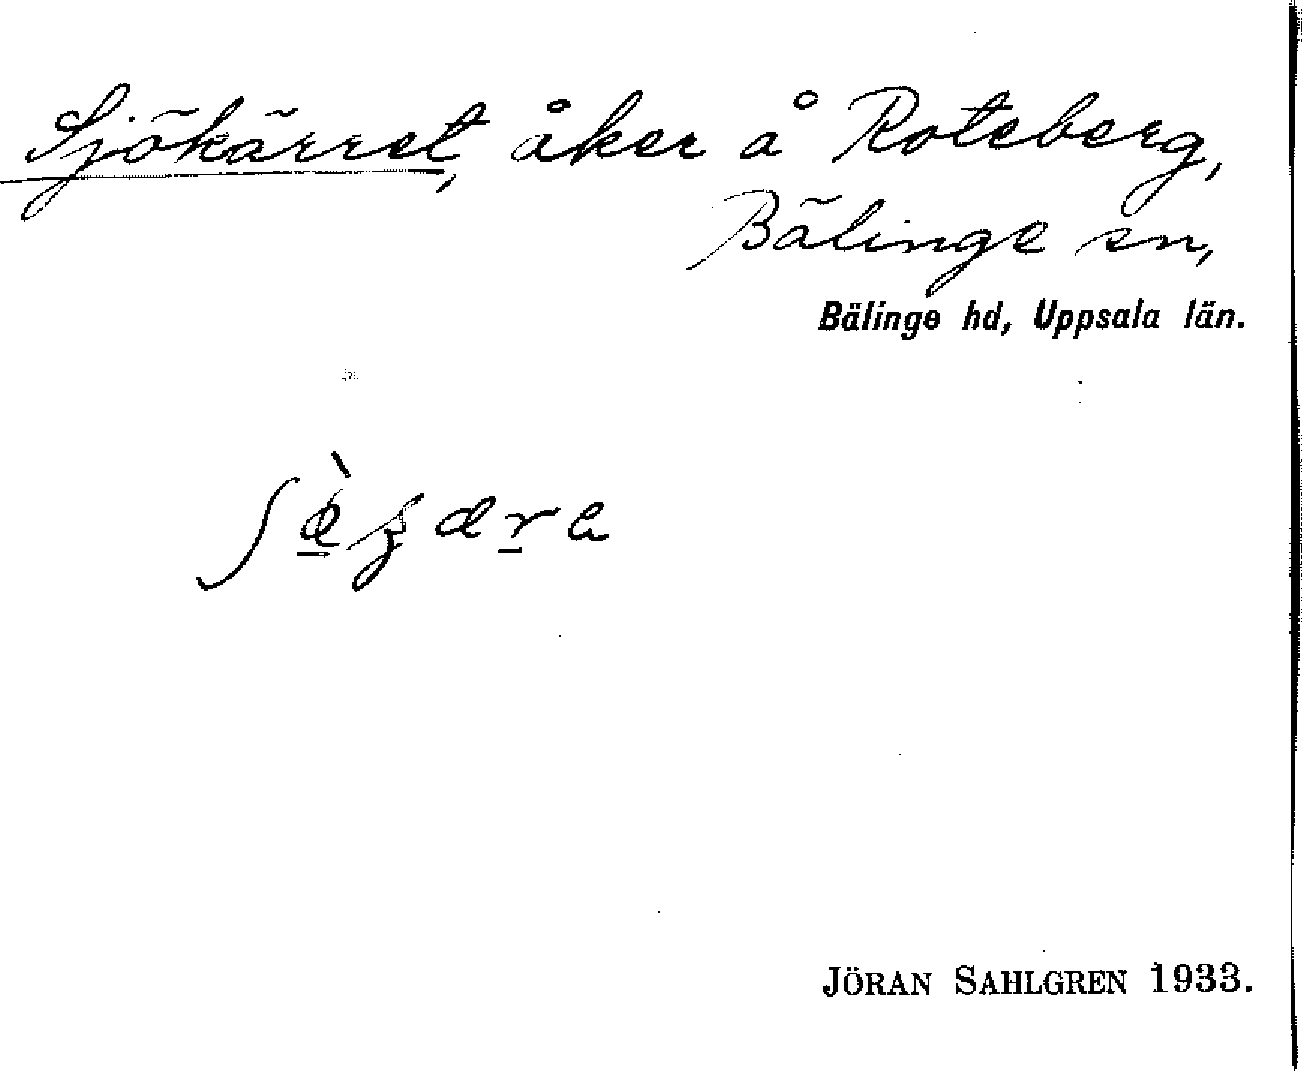 Sjökärret, åker å Roteberg,
Bälinge sn,
Bälinge hd, Uppsala län.
JÖRAN SAHLGREN 1933.